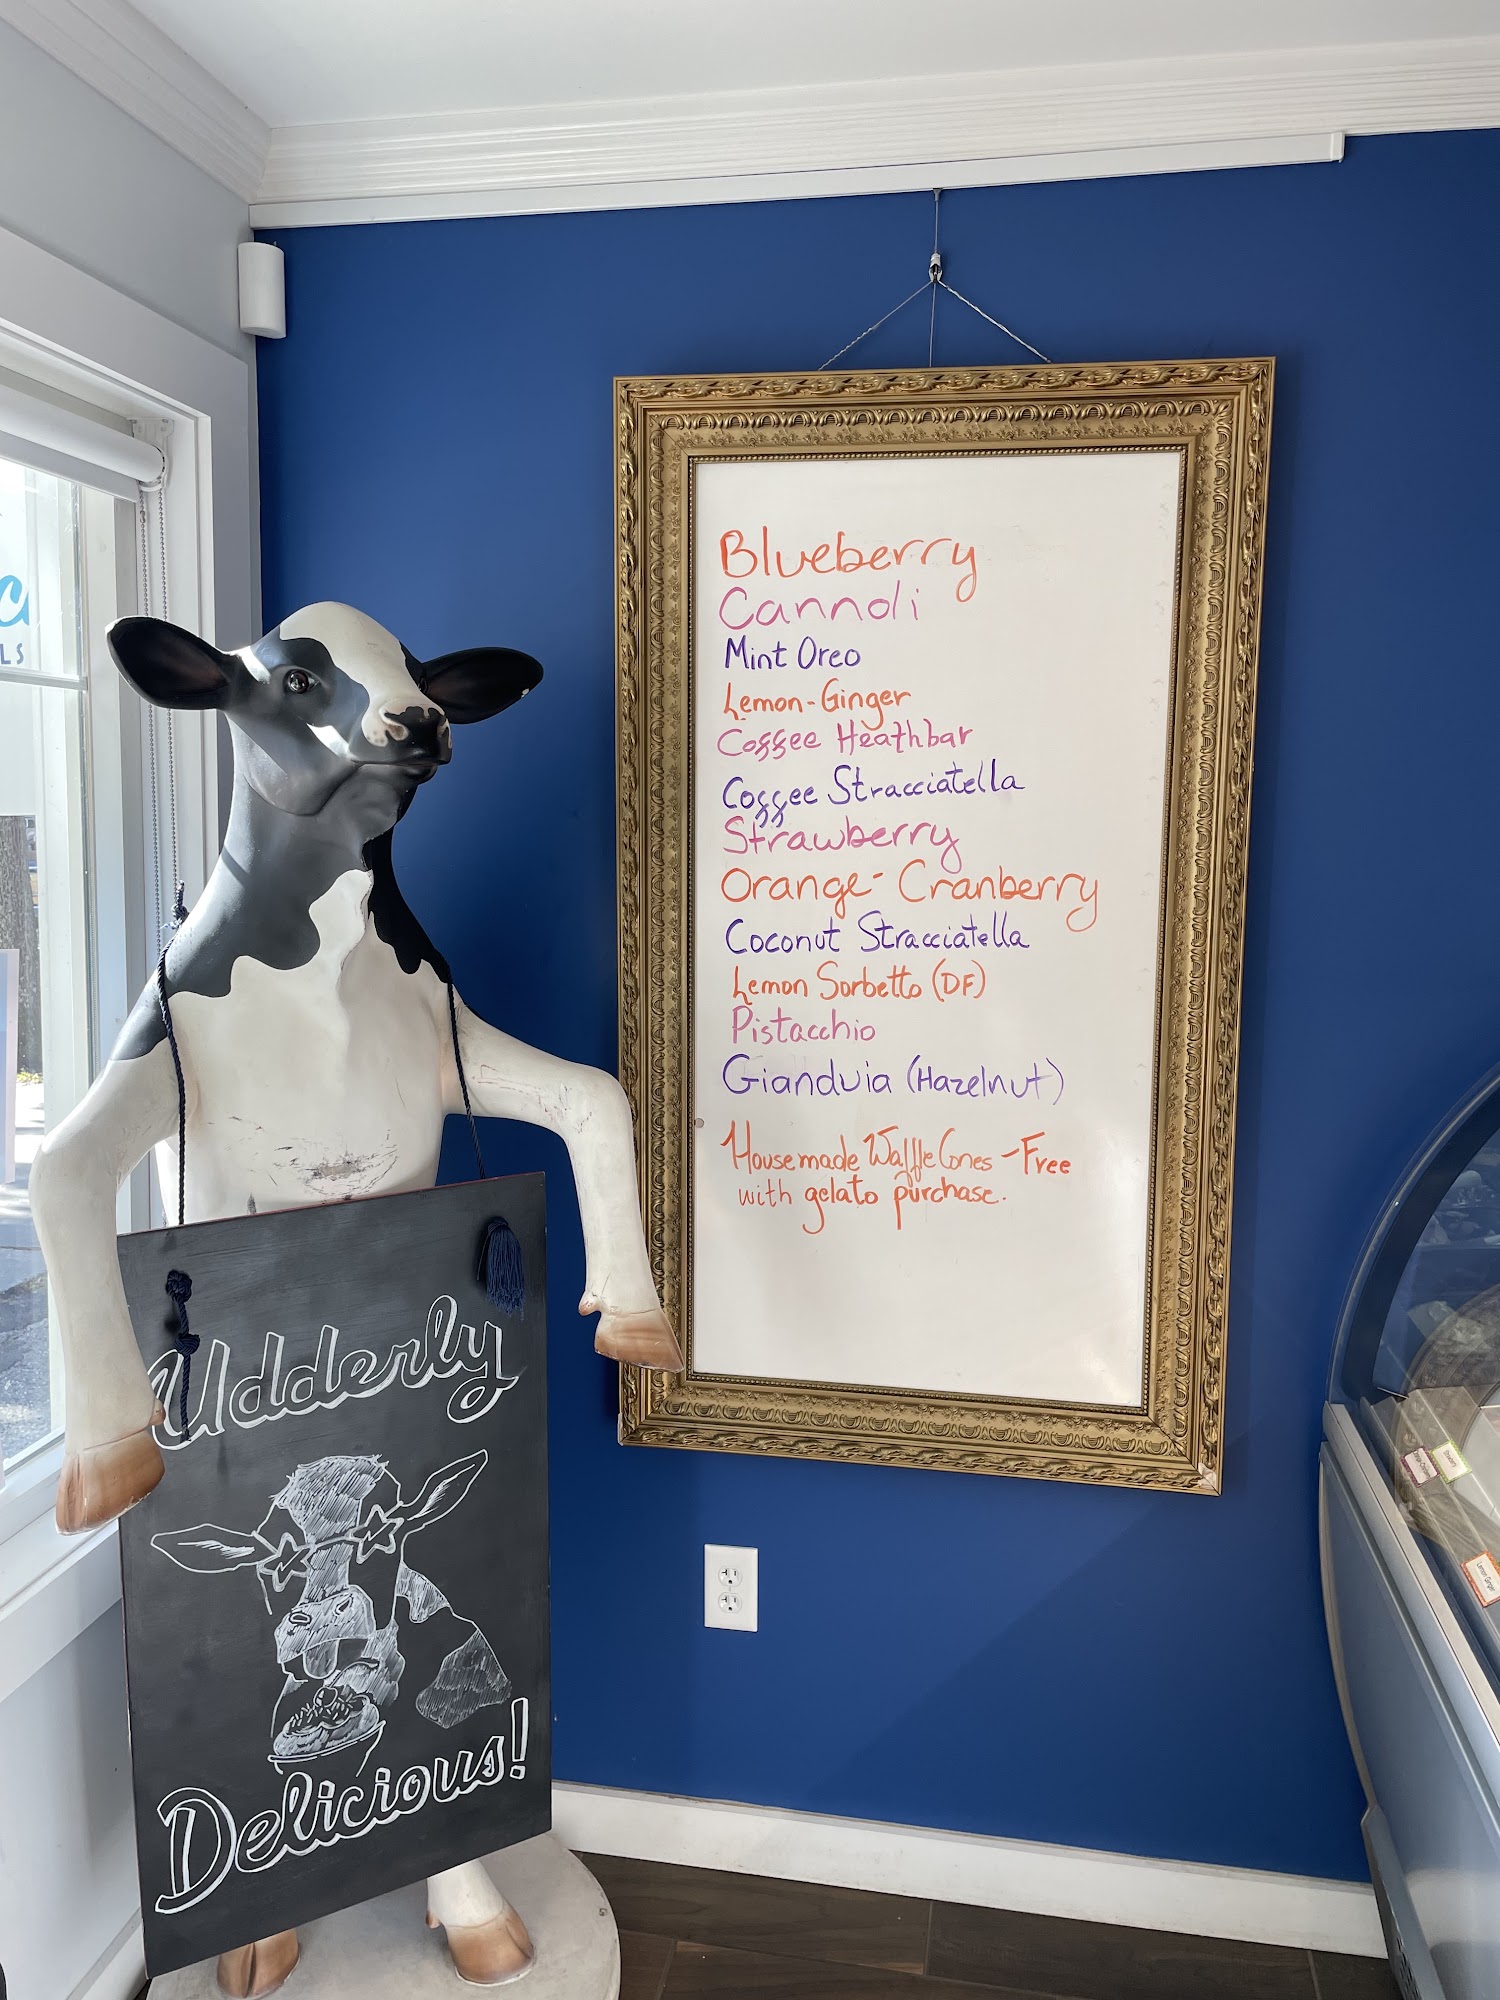 Blueberry
Cannoli
Mint Oreo
Lemon-Ginger
Coffee Heathbar
Coffee Stracciatella
Strawberry
Orange-Cranberry
Coconut Stracciatella
Lemon Sorbetto (DF)
Pistacchio
Gianduia (Hazelnut)
Housemade Waffle Cones - Free
with gelato purchase.
Udderly
Delicious!
Strawberry
Lemon Ginger